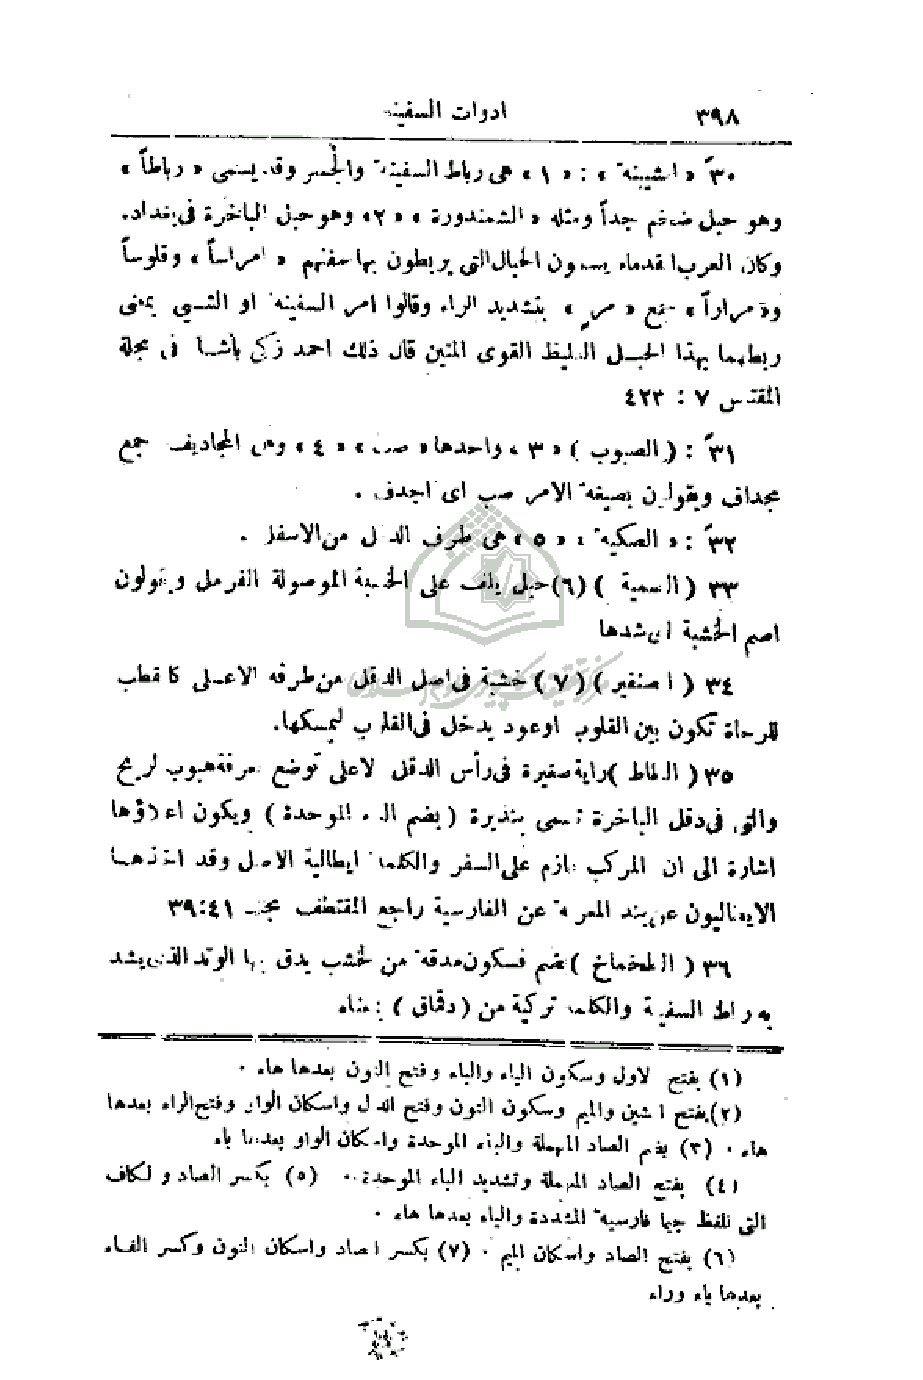 ٣٩٨ ادوات السفينة
٣٠ً « الشيبنة » : « ١ » هى رباط السفينة والجسر وقد يسمى « رباطاً »
وهو حبل ضخم جداً ومثله « الشمندورة » « ٢ » وهو حبل الباخرة فى بغداد.
وكان العرب القدماء يسمون الحبال التى يربطون بها سفنهم « امراساً » وقلوساً
و« مراراً » جمع « مر » بتشديد الراء وقالوا امر السفينة او الشيء بمعنى
ربطهما بهذا الحبل الغليظ القوى المتين قال ذلك احمد زكى باشا فى مجلة
المقتبس ٧ : ٤٢٣
٣١ً : ( الصبوب ) « ٣ » واحدها « صب » « ٤ » وهى المجاديف جمع
مجداف ويقولون بصيغة الامر صب اى اجدف .
٣٢ً : « الصكية » « ٥ » هى طرف الدقل من الاسفل .
٣٣ ( الصمية ) (٦) حبل يلف على الخشبة الموصولة الفرمل ويقولون
اصم الخشبة اى شدها
٣٤ ( الصنفير ) ( ٧ ) خشبة فى اصل الدقل من طرفه الاعلى كالقطب
للرحاة تكون بين القلوب اوعود يدخل فى القلوب ليمسكها.
٣٥ ( الطاط ) راية صغيرة فى رأس الدقل الاعلى توضع لمعرفة هبوب الريح
والتى فى دقل الباخرة تسمى بنديرة ( بضم الباء الموحدة ) ويكون اعلاؤها
اشارة الى ان المركب عازم على السفر والكلمة ايطالية الاصل وقد اتخذها
الايطاليون عن بند المعربة عن الفارسية راجع المقتطف مجلد ٣٩:٤١
٣٦ ( الطخماخ ) بضم فسكون مدقة من خشب يدق بها الوتد الذى يشد
به رباط السفينة والكلمة تركية من ( دقماق ) بمعناه
(١) بفتح الاول وسكون الياء والباء وفتح النون بعدها هاء .
(٢) بفتح الشين والميم وسكون النون وفتح الدال واسكان الواو وفتح الراء بعدها
هاء . (٣) بضم الصاد المهملة والباء الموحدة واسكان الواو بعدها باء
(٤) بفتح الصاد المهملة وتشديد الباء الموحدة . (٥) بكسر الصاد والكاف
التى تلفظ جيما فارسية المشددة والياء بعدها هاء .
(٦) بفتح الصاد واسكان الميم . (٧) بكسر الصاد واسكان النون وكسر الفاء
بعدها ياء وراء